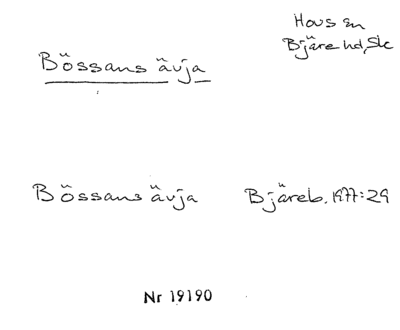 Hovs sn
Bjäre hd, Sk
Bössans ävja
Bössans ävja Bjäreb. 1977:29
Nr 19190